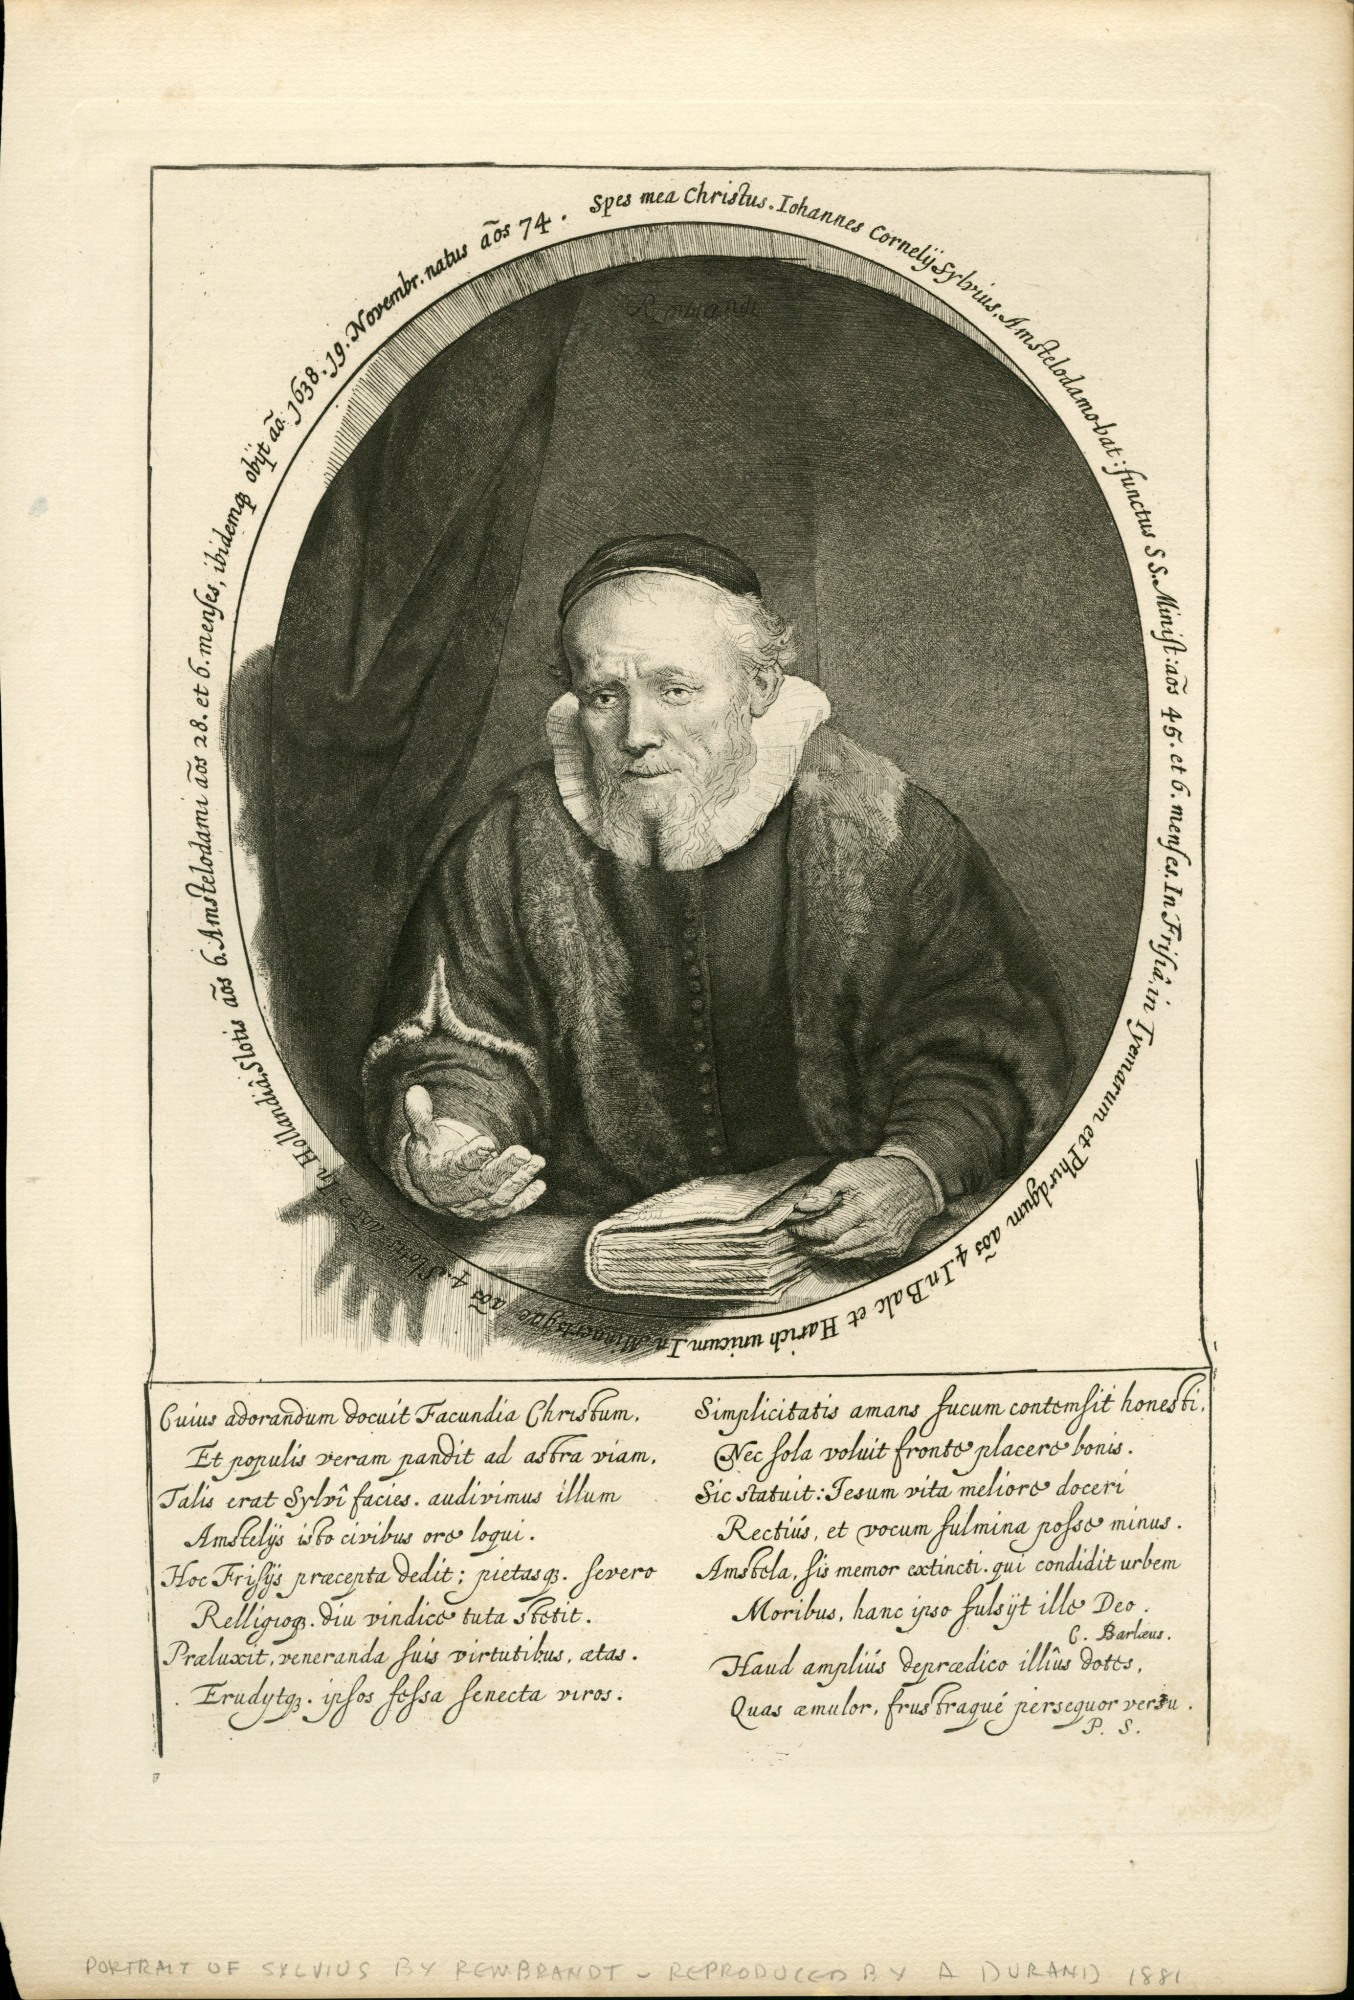 Spes mea Christus. Iohannes Cornelÿ Sylvius, Amstelodamo-bat: functus SS. Minist: aõs 45. et 6. menses. In Frisiâ, in Tyemarum et Phirdgum aõs 4. In Balc et Harich unicum. In Minnertsgae aõs 4. Slotis aõs 2. In Hollandiâ, Slotis aõs 6. Amstelodami aõs 28. et 6. menses, ibidemqꝫ obÿt aõ. 1638. 19. Novembr. natus aõs 74.
Rembrandt
Cuius adorandum docuit Facundia Christum,
Et populis veram pandit ad astra viam,
Talis erat Sylvî facies. audivimus illum
Amstelÿs isto civibus ore loqui.
Hoc Frisÿs præcepta dedit; pietasqꝫ. severo
Relligioqꝫ. diu vindice tuta stetit.
Præluxit, veneranda suis virtutibus, ætas.
Erudytqꝫ. ipsos fessa senecta viros.
Simplicitatis amans fucum contemsit honesti,
Nec sola voluit fronte placere bonis.
Sic statuit: Iesum vita meliore doceri
Rectiús, et vocum fulmina posse minus.
Amstela, sis memor extincti. qui condidit urbem
Moribus, hanc ipso fulsÿt ille Deo.
C. Barlæus.
Haud ampliús deprædico illîus dotes,
Quas æmulor, frustraqué persequor versu.
P. S.
PORTRAIT OF SYLVIUS BY REMBRANDT - REPRODUCED BY A DURAND 1881